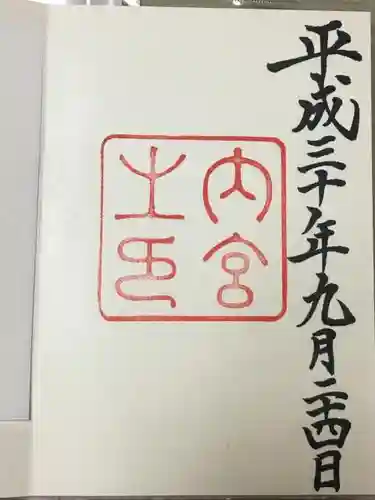 平成三十年九月二十四日
内宮
之印